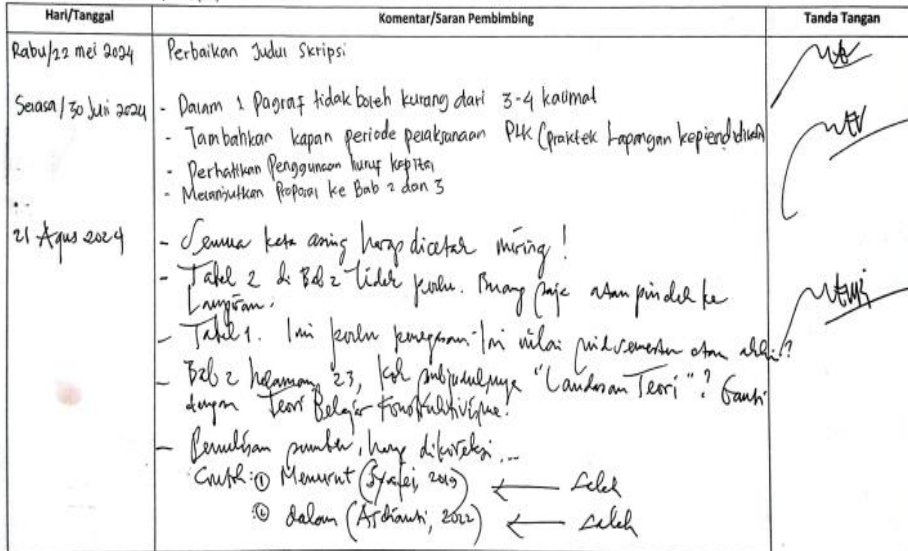 Hari/Tanggal Komentar/Saran Pembimbing Tanda Tangan
Rabu/22 mei 2024 Perbaikan Judul Skripsi
Selasa/30 Juli 2024 - Dalam 1 Pagraf tidak boleh kurang dari 3-4 kalimat
- Tambahkan kapan periode pelaksanaan PLK (praktek Lapangan kependidikan)
- Perhatikan Penggunaan huruf kapital
- Melanjutkan Proposal ke Bab 2 dan 3
21 Agus 2024 - Semua kata asing harap dicetak miring!
- Tabel 2 di Bab 2 tidak perlu. Buang saja atau pindah ke
Lampiran.
- Tabel 1. Ini perlu penegasan. Ini nilai midsemester atau akhir?
- Bab 2 halaman 23, Kok subjudulnya "Landasan Teori"? Ganti
dengan Teori Belajar Konstruktivisme.
- Penulisan sumber, harap dikoreksi...
Contoh: ① Menurut (Syafei, 2019) ← salah
② dalam (Ardianti, 2022) ← salah